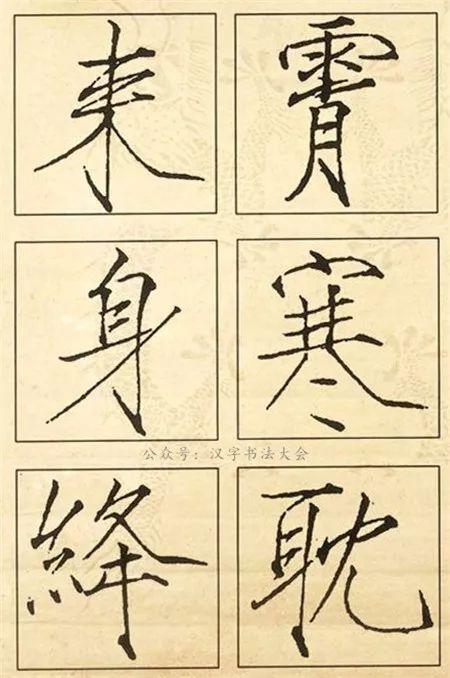 霄
寒
耽
来
身
絳
公众号：汉字书法大会